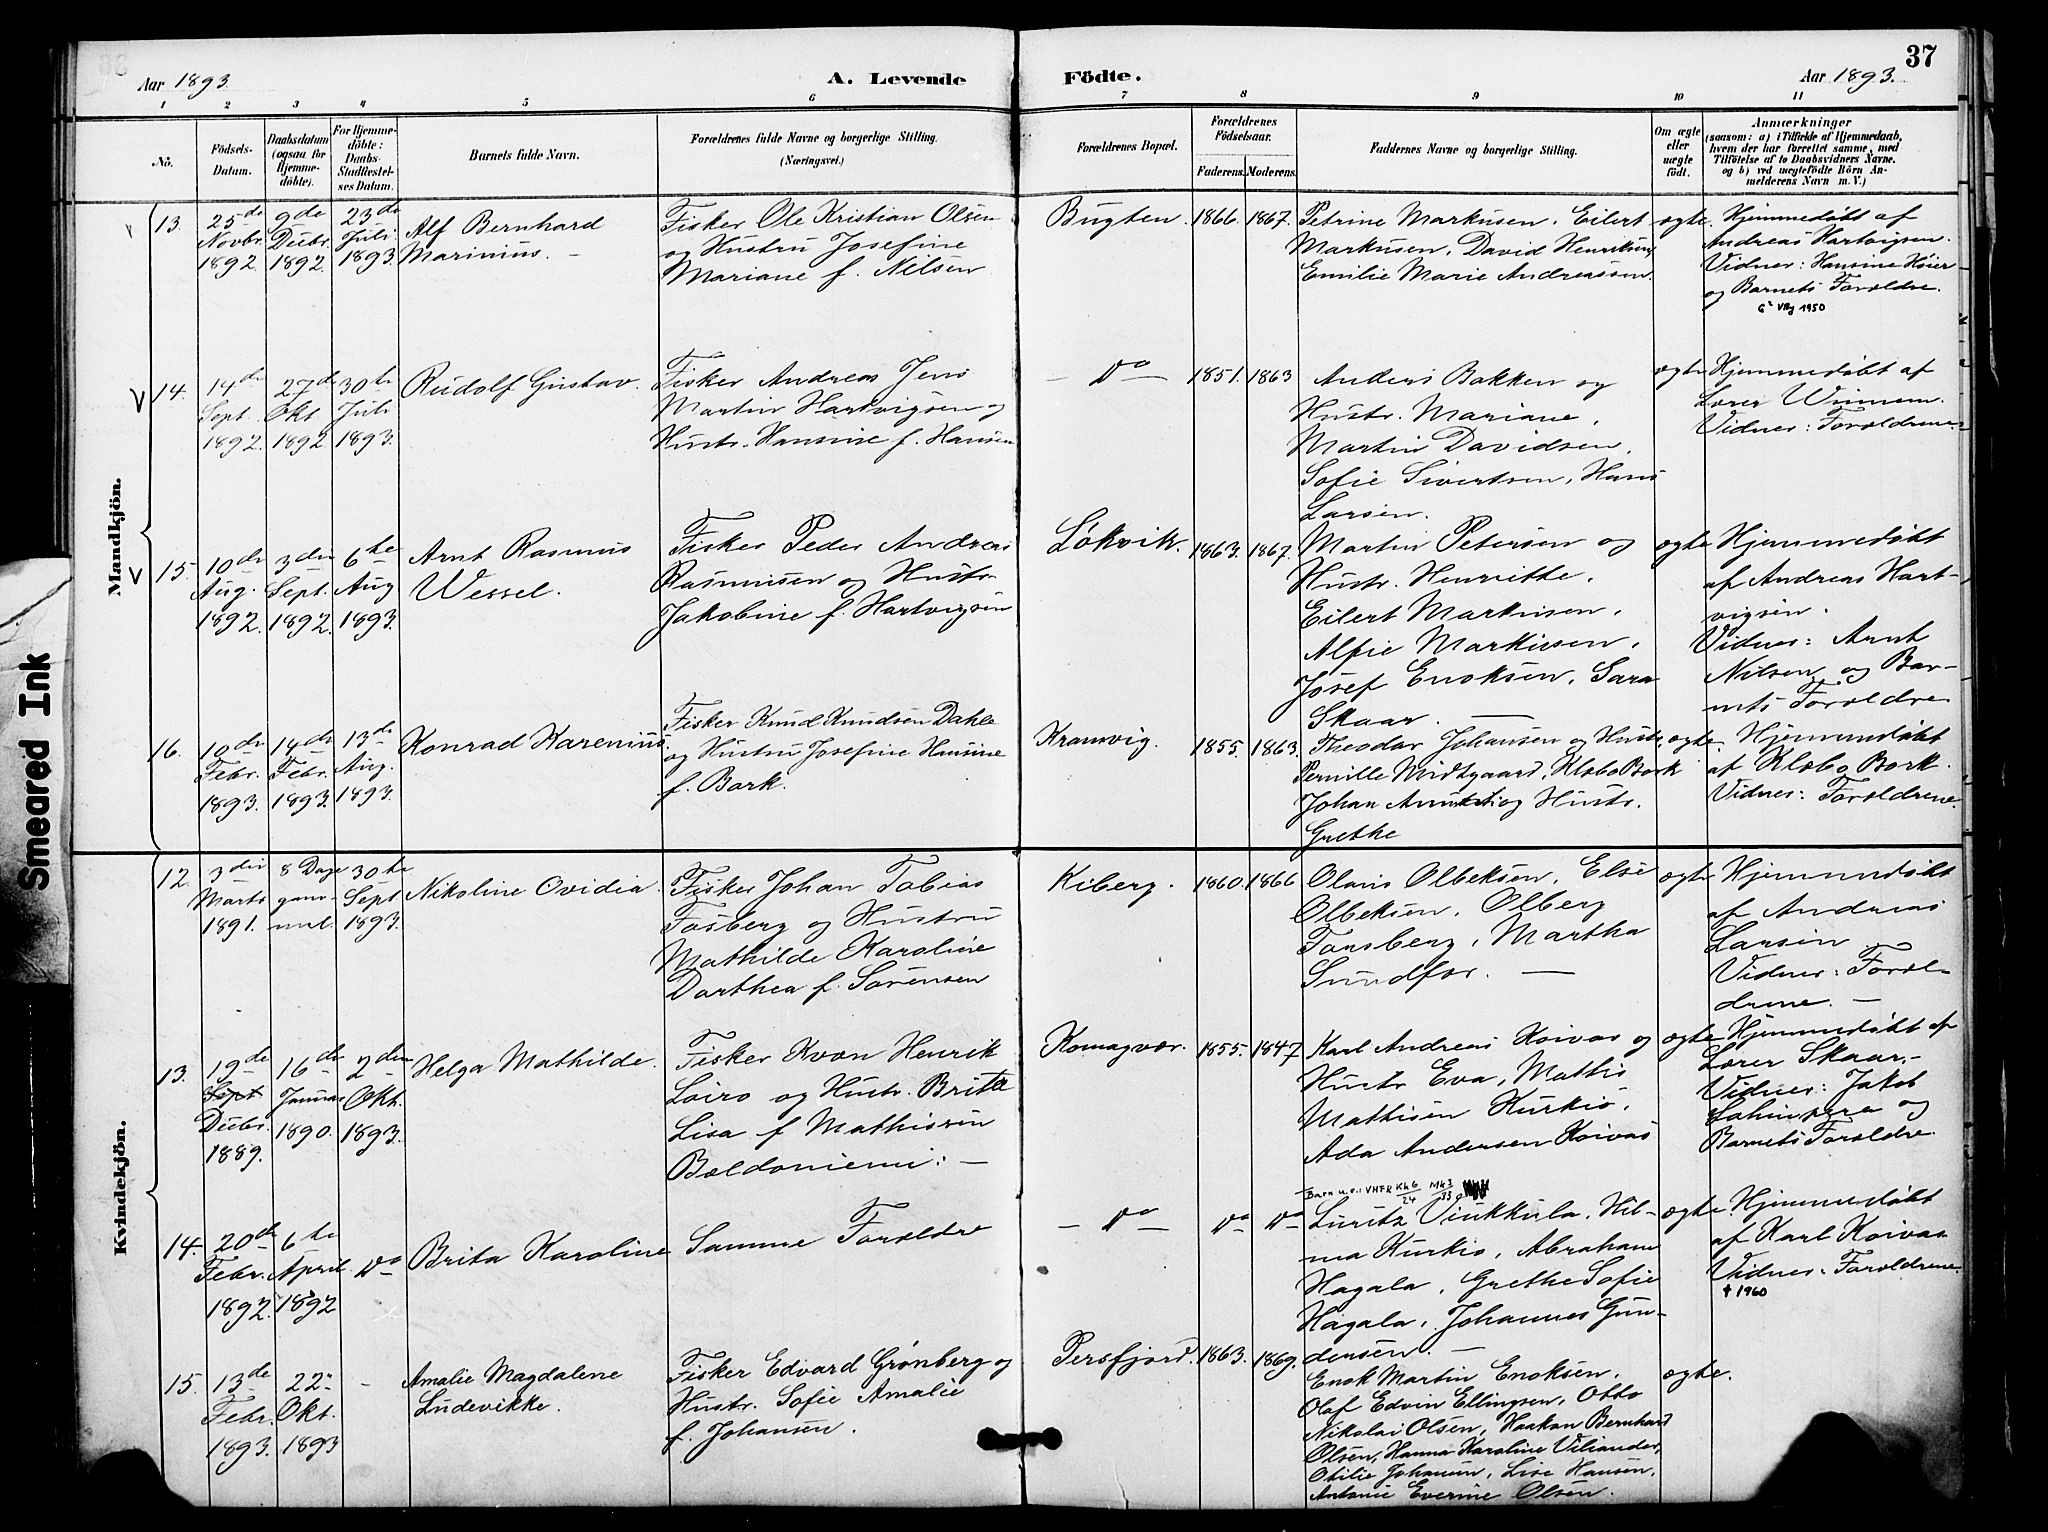 37
Aar 1893.
A. Levende
Födte.
Aar 1893.
1 2 3 4 5 6 7 8 9 10 11
No.
Födsels-
Datum.
Daabsdatum
(ogsaa for
Hjemme-
döbte).
For Hjemme-
döbte:
Daabs-
Stadfæstel-
ses Datum.
Barnets fulde Navn.
Forældrenes fulde Navne og borgerlige Stilling.
(Næringsvei.)
Forældrenes Bopæl.
Forældrenes
Födselsaar.
Faderens. Moderens.
Faddernes Navne og borgerlige Stilling.
Om ægte
eller
uægte
født.
Anmærkninger
(saasom: a) i Tilfælde af Hjemmedaab,
hvem der har forrettet samme, med
Tilföielse af to Daabsvidners Navne.
og b) ved uægtefödte Börn An-
melderens Navn m. V.)
Mandkjön.
13.
25de
Novbr.
1892.
9de
Decbr.
1892.
23de
Juli
1893.
Alf Bernhard
Marinius. –
Fisker Ole Kristian Olsen
og Hustru Josefine
Mariane f. Nilsen
Bugten.
1866. 1867.
Petrine Markusen. Eilert
Markusen, David Henriksen,
Emilie Marie Andreassen.
ægte.
Hjemmedøbt af
Andreas Hartvigsen.
Vidner: Hansine Høier
og Barnets Forældre.
1950
14.
14de
Sept.
1892.
27de
Okt
1892.
30te
Juli
1893.
Rudolf Gustav.
Fisker Andreas Jens
Martin Hartvigsen og
Hustr. Hansine f. Hansen
– Do –
1851. 1863
Anders Bakken og
Hustr. Mariane,
Martin Davidsen,
Sofie Sivertsen, Hans
Larsen.
ægte
Hjemmedøbt af
Lærer Winnem.
Vidner: Forældrene.
15.
10de
Aug.
1892.
3die
Sept.
1892.
6te
Aug
1893.
Arnt Rasmus
Wessel.
Fisker Peder Andreas
Rasmusen og Hustr.
Jakobine f. Hartvigsen
Løkvik.
1863. 1867.
Martin Petersen og
Hustr. Henritte,
Eilert Markusen,
Alfie Markusen,
Josef Enoksen, Sara
Skaar. –
ægte
Hjemmedøbt
af Andreas Hart-
vigsen.
Vidner: Arnt
Nilsen og Bar-
nets Forældre
16.
10de
Febr.
1893.
14de
Febr.
1893.
13de
Aug.
1893.
Konrad Karenius
Fisker Knud Knudsen Dahle
og Hustru Josefine Hansine
f. Bork.
Kramvig.
1855. 1863.
Theodor Johansen og Hustr.
Pernille Midtgaard, Klæbo Bork
Johan og Hustr.
Grethe
ægte.
Hjemmedøbt
af Klæbo Bork.
Vidner: Forældrene.
Kvindekjön.
12
3die
Marts
1891.
8 Dage
gam-
mel.
30te
Sept
1893.
Nikoline Ovidia.
Fisker Johan Tobias
Fosberg og Hustru
Mathilde Karoline
Dorthea f. Sørensen
Kiberg.
1860. 1866
Olaus Olbeksen, Else
Olbeksen, Olberg
Torsberg, Martha
Sundfør. –
ægte
Hjemmedøbt
af Andreas
Larsen
Vidner: Foræl-
drene. –
13.
19de
Sept
Decbr.
1889.
16de
Januar
1890.
2den
Okt.
1893.
Helga Mathilde.
Fisker Kvæn Henrik
Loiro og Hustr. Brita
Lisa f Mathissen
Beldoniemi: –
Komagvær.
1855. 1847
Karl Andreas Koivas og
Hustr Eva, Mathis
Mathisen Kurkio,
Ada Andersen Koivas
ægte
Hjemmedøbt af
Lærer Skaar.-
Vidner: Jakob
og
Barnets Forældre.
14.
20de
Febr.
1892.
6te
April.
1892
Do
Brita Karoline
Samme Forældre
– Do –
Do Do
Barn
Luritz Vinkkula, Hil-
ma Kurkio, Abraham
Hagala, Grethe Sofie
Hagala, Johannes Gun-
densen. –
ægte.
Hjemmedøbt
af Karl Koivas
Vidner: Forældrene.
† 1960
15.
13de
Febr.
1893.
22.
Okt.
1893
–
Amalie Magdalene
Ludevikke.
Fisker Edvard Grønberg og
Hustr. Sofie Amalie
f. Johansen.
Persfjord.
1863. 1869.
Enok Martin Enoksen.
Olaf Edvin Ellingsen, Otto
Nikolai Olsen, Haakon Bernhard
Olsen, Hanna Karoline Viliander,
Otilie Johansen, Lise Hansen,
Antonie Everine Olsen.
ægte.
Smeared Ink